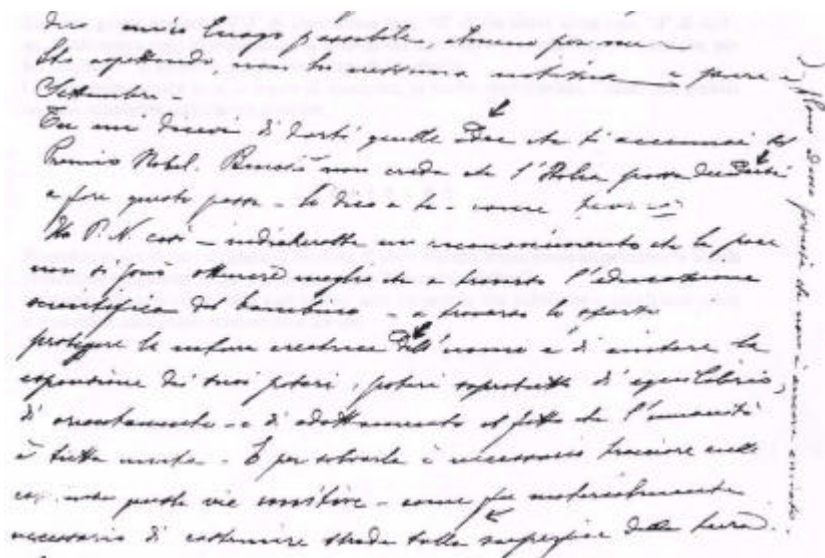 luogo possibile. Anno prossimo
Sto aspettando, non ho nessuna notizia e pure è
Settembre.
Tu mi dicevi di darti quelle idee che ti accennai del
Premio Nobel. Benchè non creda che l'Italia possa decidersi
a fare questo passo - lo dico a te - come
Un P. N. così - indicherebbe un riconoscimento che la pace
non si può ottenere meglio che a traverso l'educazione
scientifica del bambino - a traverso lo sforzo
proteggere la natura creatrice dell'uomo e di aiutare la
espansione dei suoi poteri, poteri soprattutto di equilibrio,
di orientamento - e di adattamento al fatto che l'umanità
è tutta unita. - E per salvarla è necessario tracciare
queste vie - come fu materialmente
necessario di costruire strade sulla superficie della terra.
che non è ancora